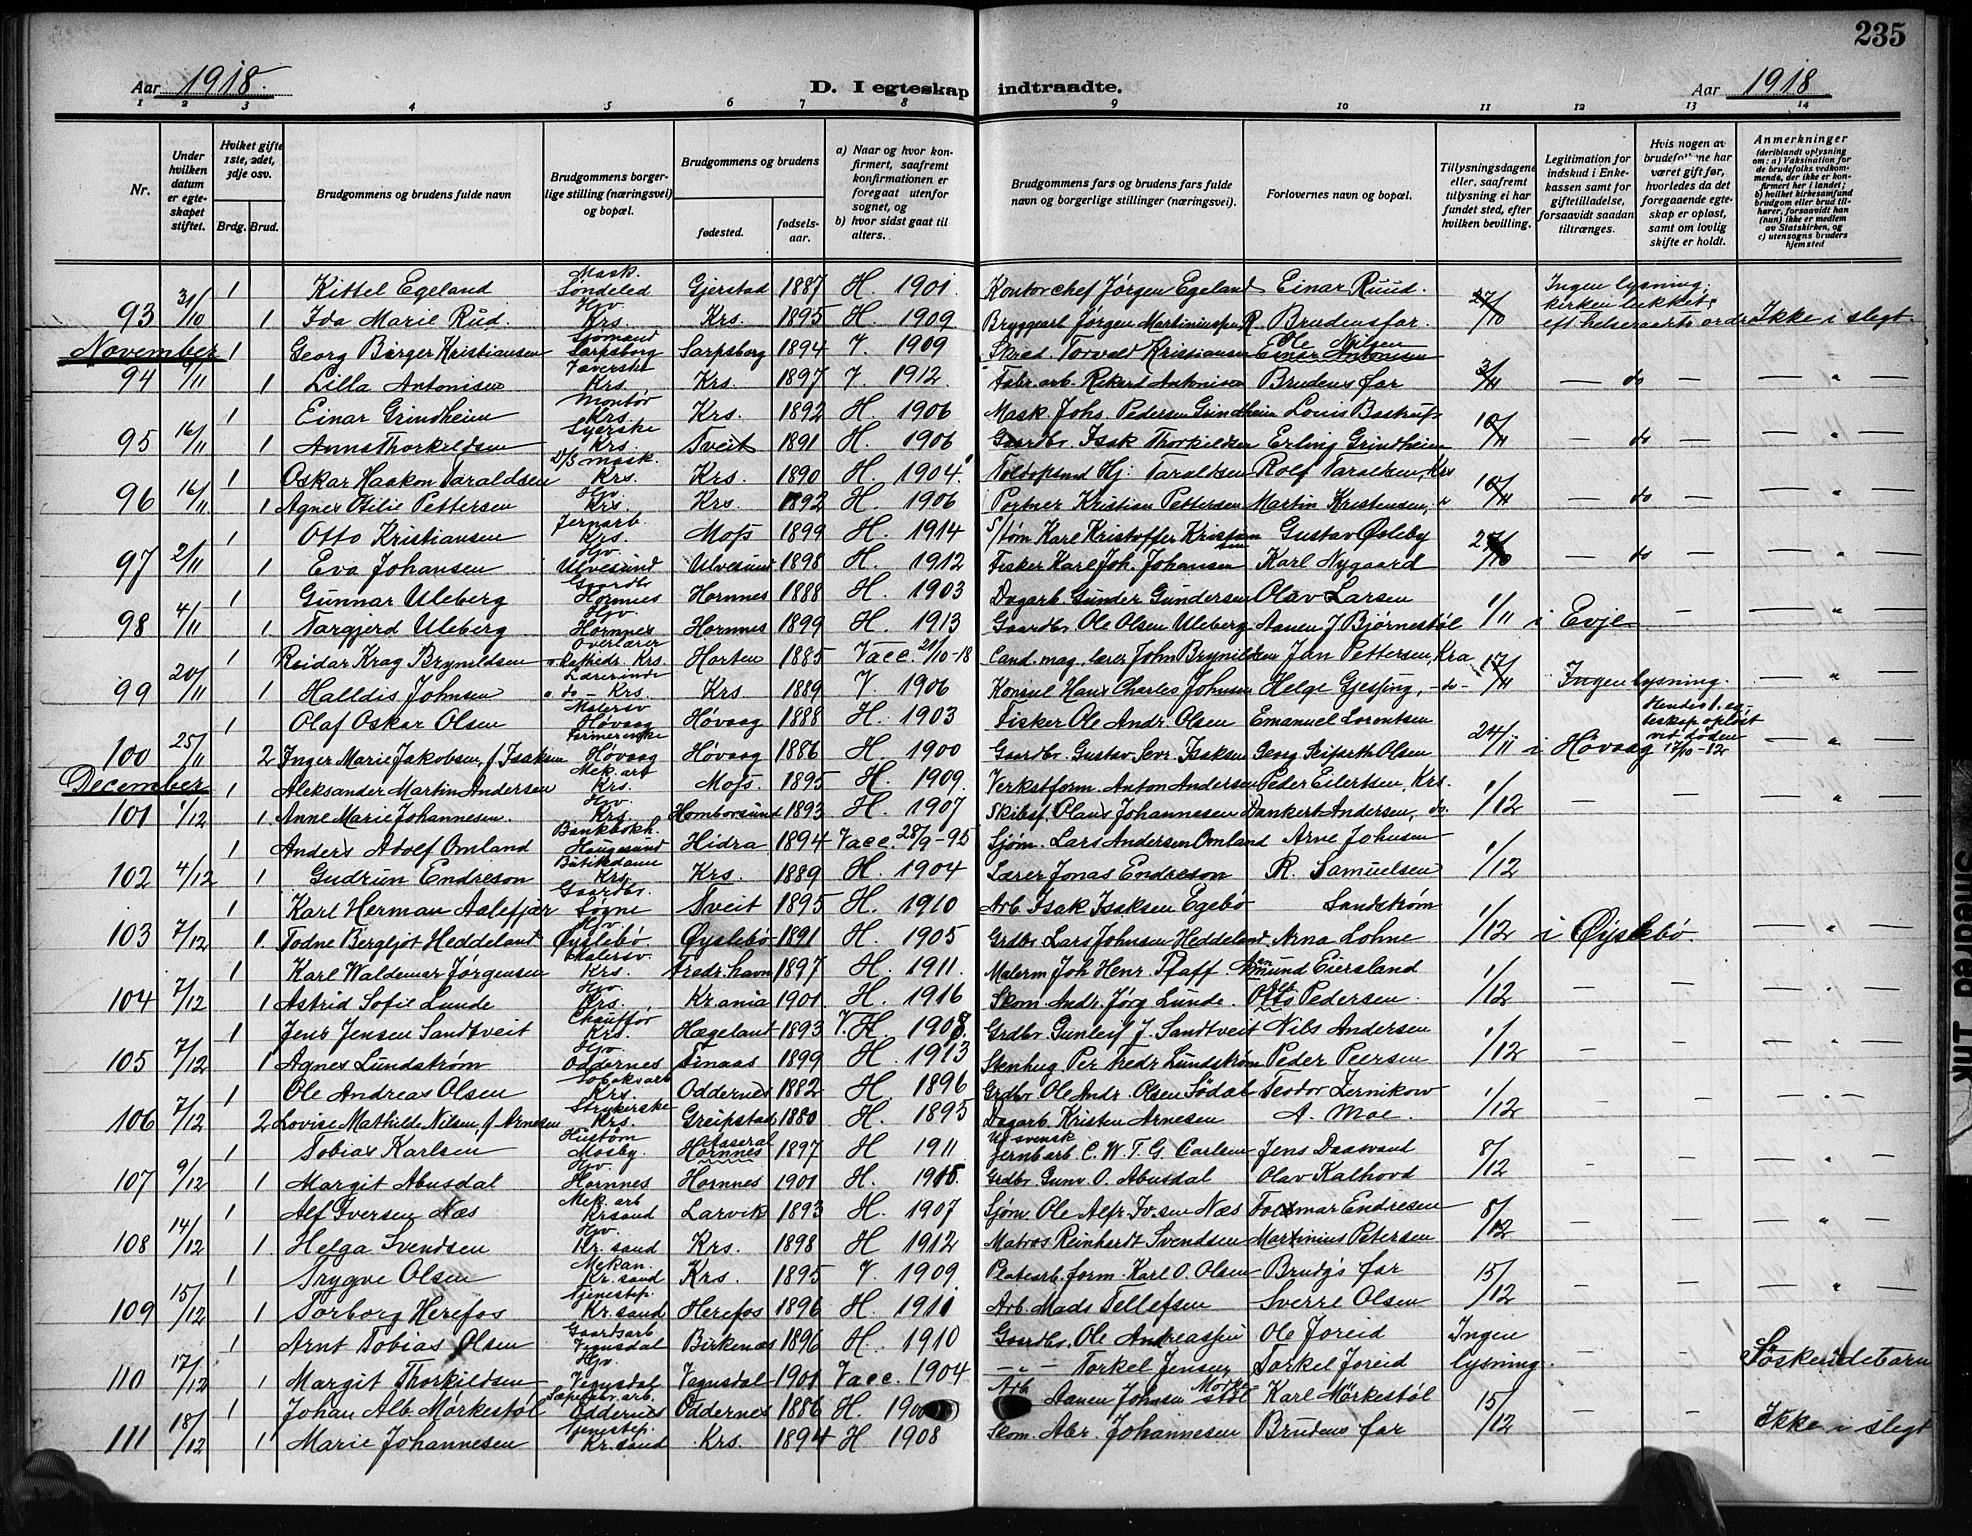 235
Aar 1918. D. I egteskap indtraadte. Aar 1918
1 2 3 4 5 6 7 8 9 10 11 12 13 14
Nr.
Under hvilken datum er egteskapet stiftet.
Hviket gifte 1ste, 2det, 3dje osv.
Brdg. Brud.
Brudgommens og brudens fulde navn
Brudgommens borgerlige stilling (næringsvei) og bopæl.
Brudgommens og brudens
fødested. fødselsaar.
a) Naar og hvor konfirmert, saafremt konfirmationen er foregaat utenfor sognet, og
b) hvor sidst gaat til alters.
Brudgommens fars og brudens fars fulde navn og borgerlige stillinger (næringsvei).
Forlovernes navn og bopæl.
Tillysningsdagene eller, saafremt tillysning ei har fundet sted, efter hvilken bevilling.
Legitimation for indskud i Enkekassen samt for giftetilladelse, forsaavidt saadan tiltrænges.
Hvis nogen av brudefolkene har været gift før, hvorledes da det foregaaende egteskap er opløst, samt om lovlig skifte er holdt.
Anmerkninger
(deriblandt oplysning om: a) Vaksination for de brudefolks vedkommende, der ikke er konfirmert her i landet; b) hvilket kirkesamfund brudgom eller brud tilhører, forsaavidt han (hun) ikke er medlem av Statskirken, og c) utensogns bruders hjemsted
1 Kittel Egeland Mask. Søndeled Gjerstad 1887 H. 1901. Kontorchef Jørgen Egeland Einar Ruud. Ingen lysning.
93 31/10 1 Ida Marie Rüd. Hjv Krs. Krs. 1895 H. 1909 Bryggearb Jørgen Martinius Brudens far. 27/10 kirken lukket eft. helseraads ordre Ikke i slegt.
November 1 Georg Birger Kristiansen Sjømand Sarpsborg Sarpsborg 1894 V. 1909 Skræd. Torvald Kristiansen Ole Nilsen
94 /11 1 Lilla Antonisen Krs. Krs. 1897 V. 1912. Fabr. arb. Rikard Antonisen Brudens far 3/11 — do — — " —
1 Einar Grindheim Montør Krs. Krs. 1892 H. 1906 Mask. Johs. Pedersen Grindheim Louis Bastrup
95 16/11 1 Anna Thorkildsen Syerske Krs Tveit 1891 H. 1906 Gaardbr. Isak Thorkildsen Erling Grindheim 10/11 — do — — " —
1 Oskar Haakon Taraldsen D/S mask. Krs. Krs. 1890 H. 1904. Toldopsynd Hj. Taraldsen Rolf Taraldsen, Krs
96 16/11 1 Agnes Otilie Pettersen Hjv. Krs Krs. 1892 H. 1906 Portner Kristian Pettersen Martin Kristensen, " 10/11 — do — — " —
1 Otto Kristiansen Jernarb. Krs. Moss 1899 H. 1914 S/tøm Karl Kristoffer Kristiansen Gustav Østeby
97 2/11 1 Eva Johansen Hjv. Ulvesund Ulvesund 1898 H. 1912 Fisker Karl Joh. Johansen Karl Nygaard 27/10 — do — — " —
1 Gunnar Uleberg Gaardbr Hornnes Hornnes 1888 H. 1903 Dagarb. Gunder Gundersen Olav Larsen
98 4/11 1 Targjerd Uleberg. Hjv. Hornnes Hornnes 1899 H. 1913 Gaardbr. Ole Olsen Uleberg Aanen J Bjørnestøl 1/11 i Evje — — " —
1 Reidar Krag Brynildsen Overlærer v. Kathedr. Krs. Horten 1885 Vacc. 21/10-18 Cand. mag. lærer John Brynildsen Jan Pettersen, Kra
99 20/11 1 Halldis Johnsen Lærerinde v. do — Krs. Krs 1889 V. 1906 Konsul Hans Charles Johnsen Helge Gjessing, -do- 17/11 Ingen lysning. — " —
1 Olaf Oskar Olsen Malersv Høvaag Høvaag 1888 H. 1903 Fisker Ole Andr. Olsen Emanuel Lorentsen Hendes 1. egteskap opløst ved døden
100 25/11 2 Inger Marie Jakobsen, f Isaksen Høvaag Høvaag 1886 H. 1900 Gaardbr. Gustav Sevr. Isaksen Georg Seiferth Olsen 24/11 i Høvaag 17/10-12 — " —
December 1 Aleksander Martin Andersen Mek. arb Krs. Moss. 1895 H. 1909. Verkstform. Anton Andersen Peder Eilertsen, Krs.
101 1/12 1 Anne Marie Johannesen. Hjv. Krs Homborsund 1893 H. 1907 Skibsf. Olaus Johannesen Dankert Andersen, do. 1/12 — — — " —
1 Anders Adolf Omland Bankbokh. Haugesund Hidra 1894 Vacc. 28/9-95 Sjøm. Lars Andersen Omland Arne Johnsen
102 4/12 1 Gudrun Endreson Butikdame Krs. Krs. 1889 H. 1904 Lærer Jonas Endreson R. Samuelsen 1/12
1 Karl Herman Aalefjær Gaardbr. Søgne Tveit 1895 H. 1910 Arb. Isak Isaksen Egebø Sandstrøm
103 7/12 1 Todne Bergljot Heddeland Hjv Øyslebø. Øyslebø 1891 H. 1905 Grdbr Lars Johnsen Heddeland Arna Lohne 1/12 i Øyslebø. — " —
1 Karl Waldemar Jørgensen Malersv. Krs. Fredr.havn 1897 H. 1911. Malerm Joh Henr. Pfaff. Amund Eiersland
104 7/12 1 Astrid Sofie Lunde Hjv Krs. Kr.ania 1901 H. 1916 Skom Andr. Jørg Lunde. Otto Pedersen. 1/12 — — — " —
1 Jens Jensen Sandtveit Chauffør Krs. Hægeland 1893 V. H. 1908. Grdbr. Gunleif J. Sandtveit Nils Andersen
105 7/12 1 Agnes Lundstrøm Hjv Oddernes Finaas 1899 H. 1913 Stenhug. Per Fredr Lundstrøm Peder Peersen 1/12 — — — " —
1 Ole Andreas Olsen Tobaksarb Krs. Oddernes 1882 H. 1896 Grdbr Ole Andr. Olsen Södal Teodor Zernikow
106 7/12 2 Lovise Mathilde Nilsen, f Arnesen Strykerske Krs. Greipstad 1880 H. 1895 Dagarb. Kristen Arnesen A. Moe. 1/12 — — — " —
1 Tobias Karlsen Hustøm Mosby. Aaseral Hornnes 1897 H 1911 svensk Jernbarb C. W. T. G. Carlsen Jens Daasvand
107 9/12 1 Margit Abusdal Hjv. Hornnes Hornnes 1901 H. 1915. Grdbr Gunv O. Abusdal Olav Kalhovd 8/12 — — — " —
1 Alf Iversen Næs Mek. arb Kr.sand Larvik 1893 H. 1907 Sjøm. Ole Alfr Iv.sen Næs Folkmar Endresen
108 14/12 1 Helga Svendsen Hjv. Kr. sand Krs. 1898 H 1912 Matros Reinhardt Svendsen Martinius Petersen 8/12 — — — " —
1 Trygve Olsen Mekan. Kr. sand Krs. 1895 V. 1909 Platearb. form. Karl O. Olsen Brudg's far
109 15/12 1 Torborg Herefos Tjenestep. Kr. sand Herefos 1896 H. 1911 Arb. Mads Tellefsen Sverre Olsen 15/12 — — — " —
1 Arnt Tobias Olsen Gaardsarb Vegusdal Birkenæs 1896 H. 1910 Gaardbr. Ole Andreassen Ole Foreid Ingen
110 17/12 1 Margit Thorkildsen Hjv. Vegusdal Vegusdal 1901 Vacc. 1904 — " — Torkel Jensen Tarkel Foreid lysning. Søskendebarn
1 Johan Alb. Mörkestøl arb. Oddernes Oddernes 1886 H. Arb Aanen Johnsen Mörkestøl Karl Mörkestöl
111 18/12 1 Marie Johannesen Tjenestep. Kr. sand Krs. 1894 H 1908 Skom. Abr. Johannesen Brudens far 15/12 — — Ikke i slegt
Smedred